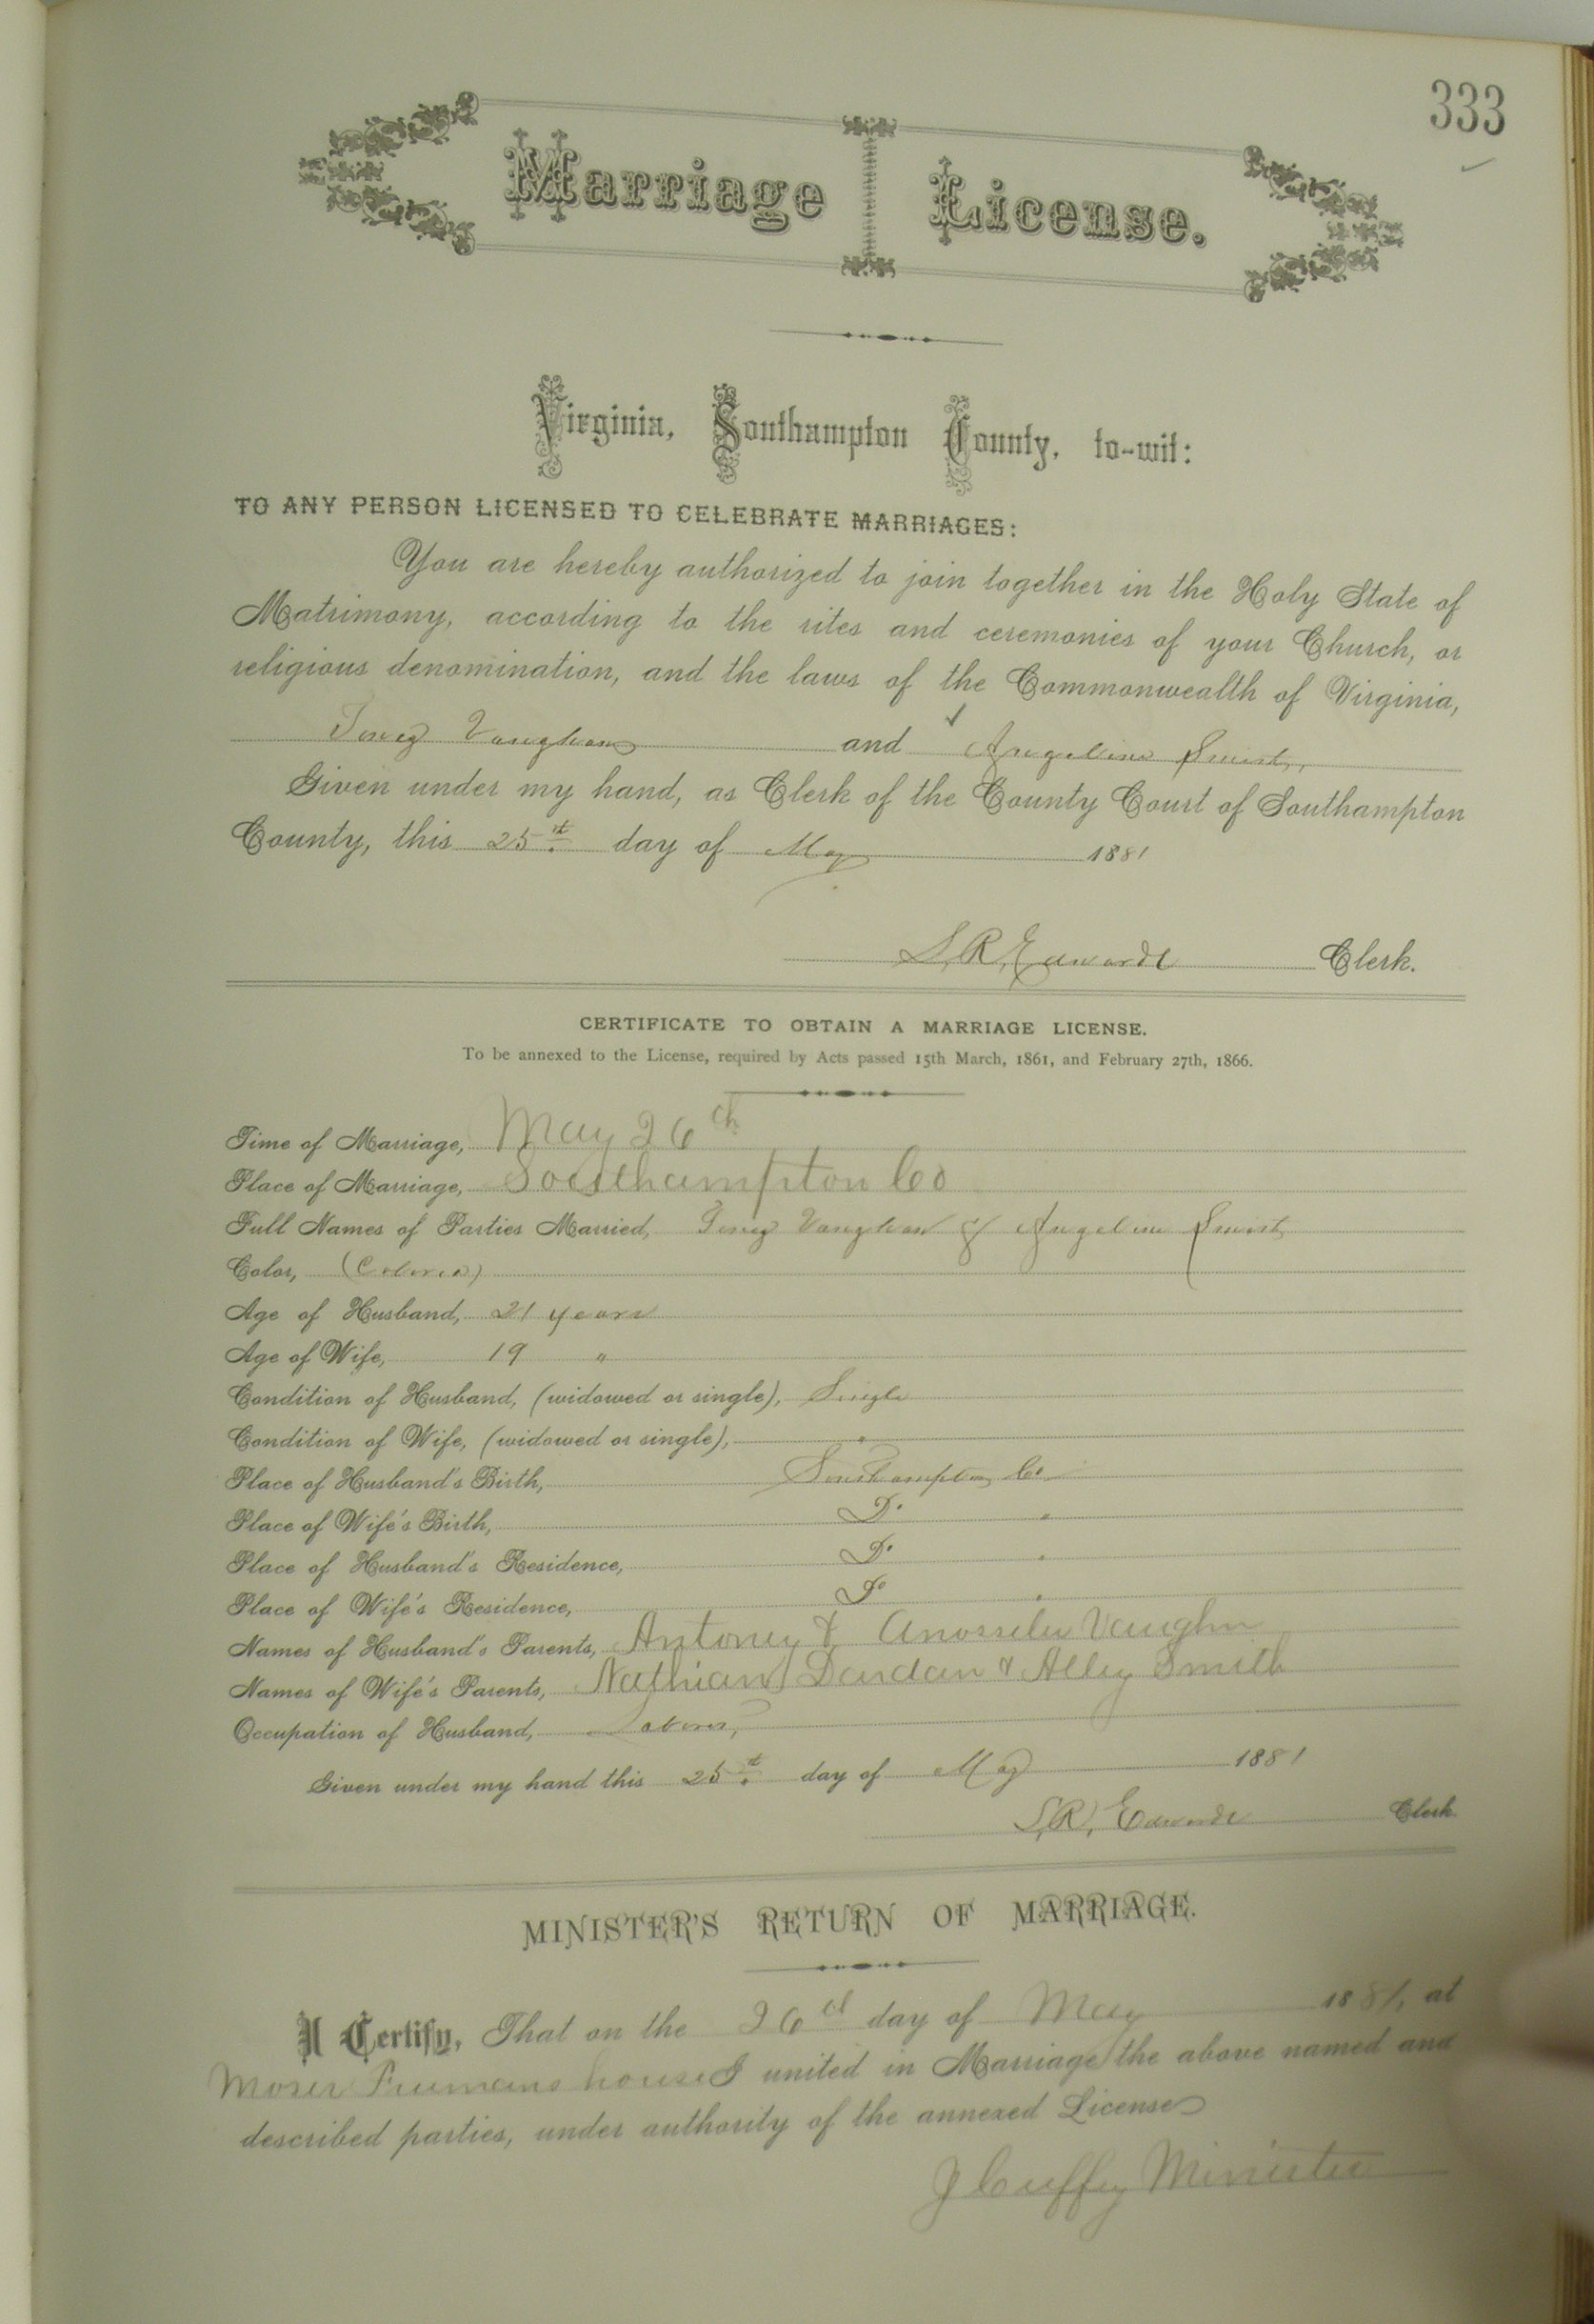 333
Marriage License.
Virginia, Southampton County, to-wit:
TO ANY PERSON LICENSED TO CELEBRATE MARRIAGES:
You are hereby authorized to join together in the Holy State of
Matrimony, according to the rites and ceremonies of your Church, or
religious denomination, and the laws of the Commonwealth of Virginia,
Vaughan and Angeline Smith,
Given under my hand, as Clerk of the County Court of Southampton
County, this 25th day of May 1881
S. R. Edwards Clerk.
CERTIFICATE TO OBTAIN A MARRIAGE LICENSE.
To be annexed to the License, required by Acts passed 15th March, 1861, and February 27th, 1866.
Time of Marriage, May 26th
Place of Marriage, Southampton Co
Full Names of Parties Married, Vaughan & Angeline Smith
Color, (Colored)
Age of Husband, 21 years
Age of Wife, 19 "
Condition of Husband, (widowed or single), Single
Condition of Wife, (widowed or single), "
Place of Husband's Birth, Southampton Co
Place of Wife's Birth, Do "
Place of Husband's Residence, Do "
Place of Wife's Residence, Do "
Names of Husband's Parents, Antony & Vaughn
Names of Wife's Parents, Nathian Dardan & Alley Smith
Occupation of Husband, Laborer,
Given under my hand this 25th day of May 1881
S. R. Edwards Clerk
MINISTER'S RETURN OF MARRIAGE.
I Certify, That on the 26 day of May 1881, at
house I united in Marriage the above named and
described parties, under authority of the annexed License
J Cuffey Minister